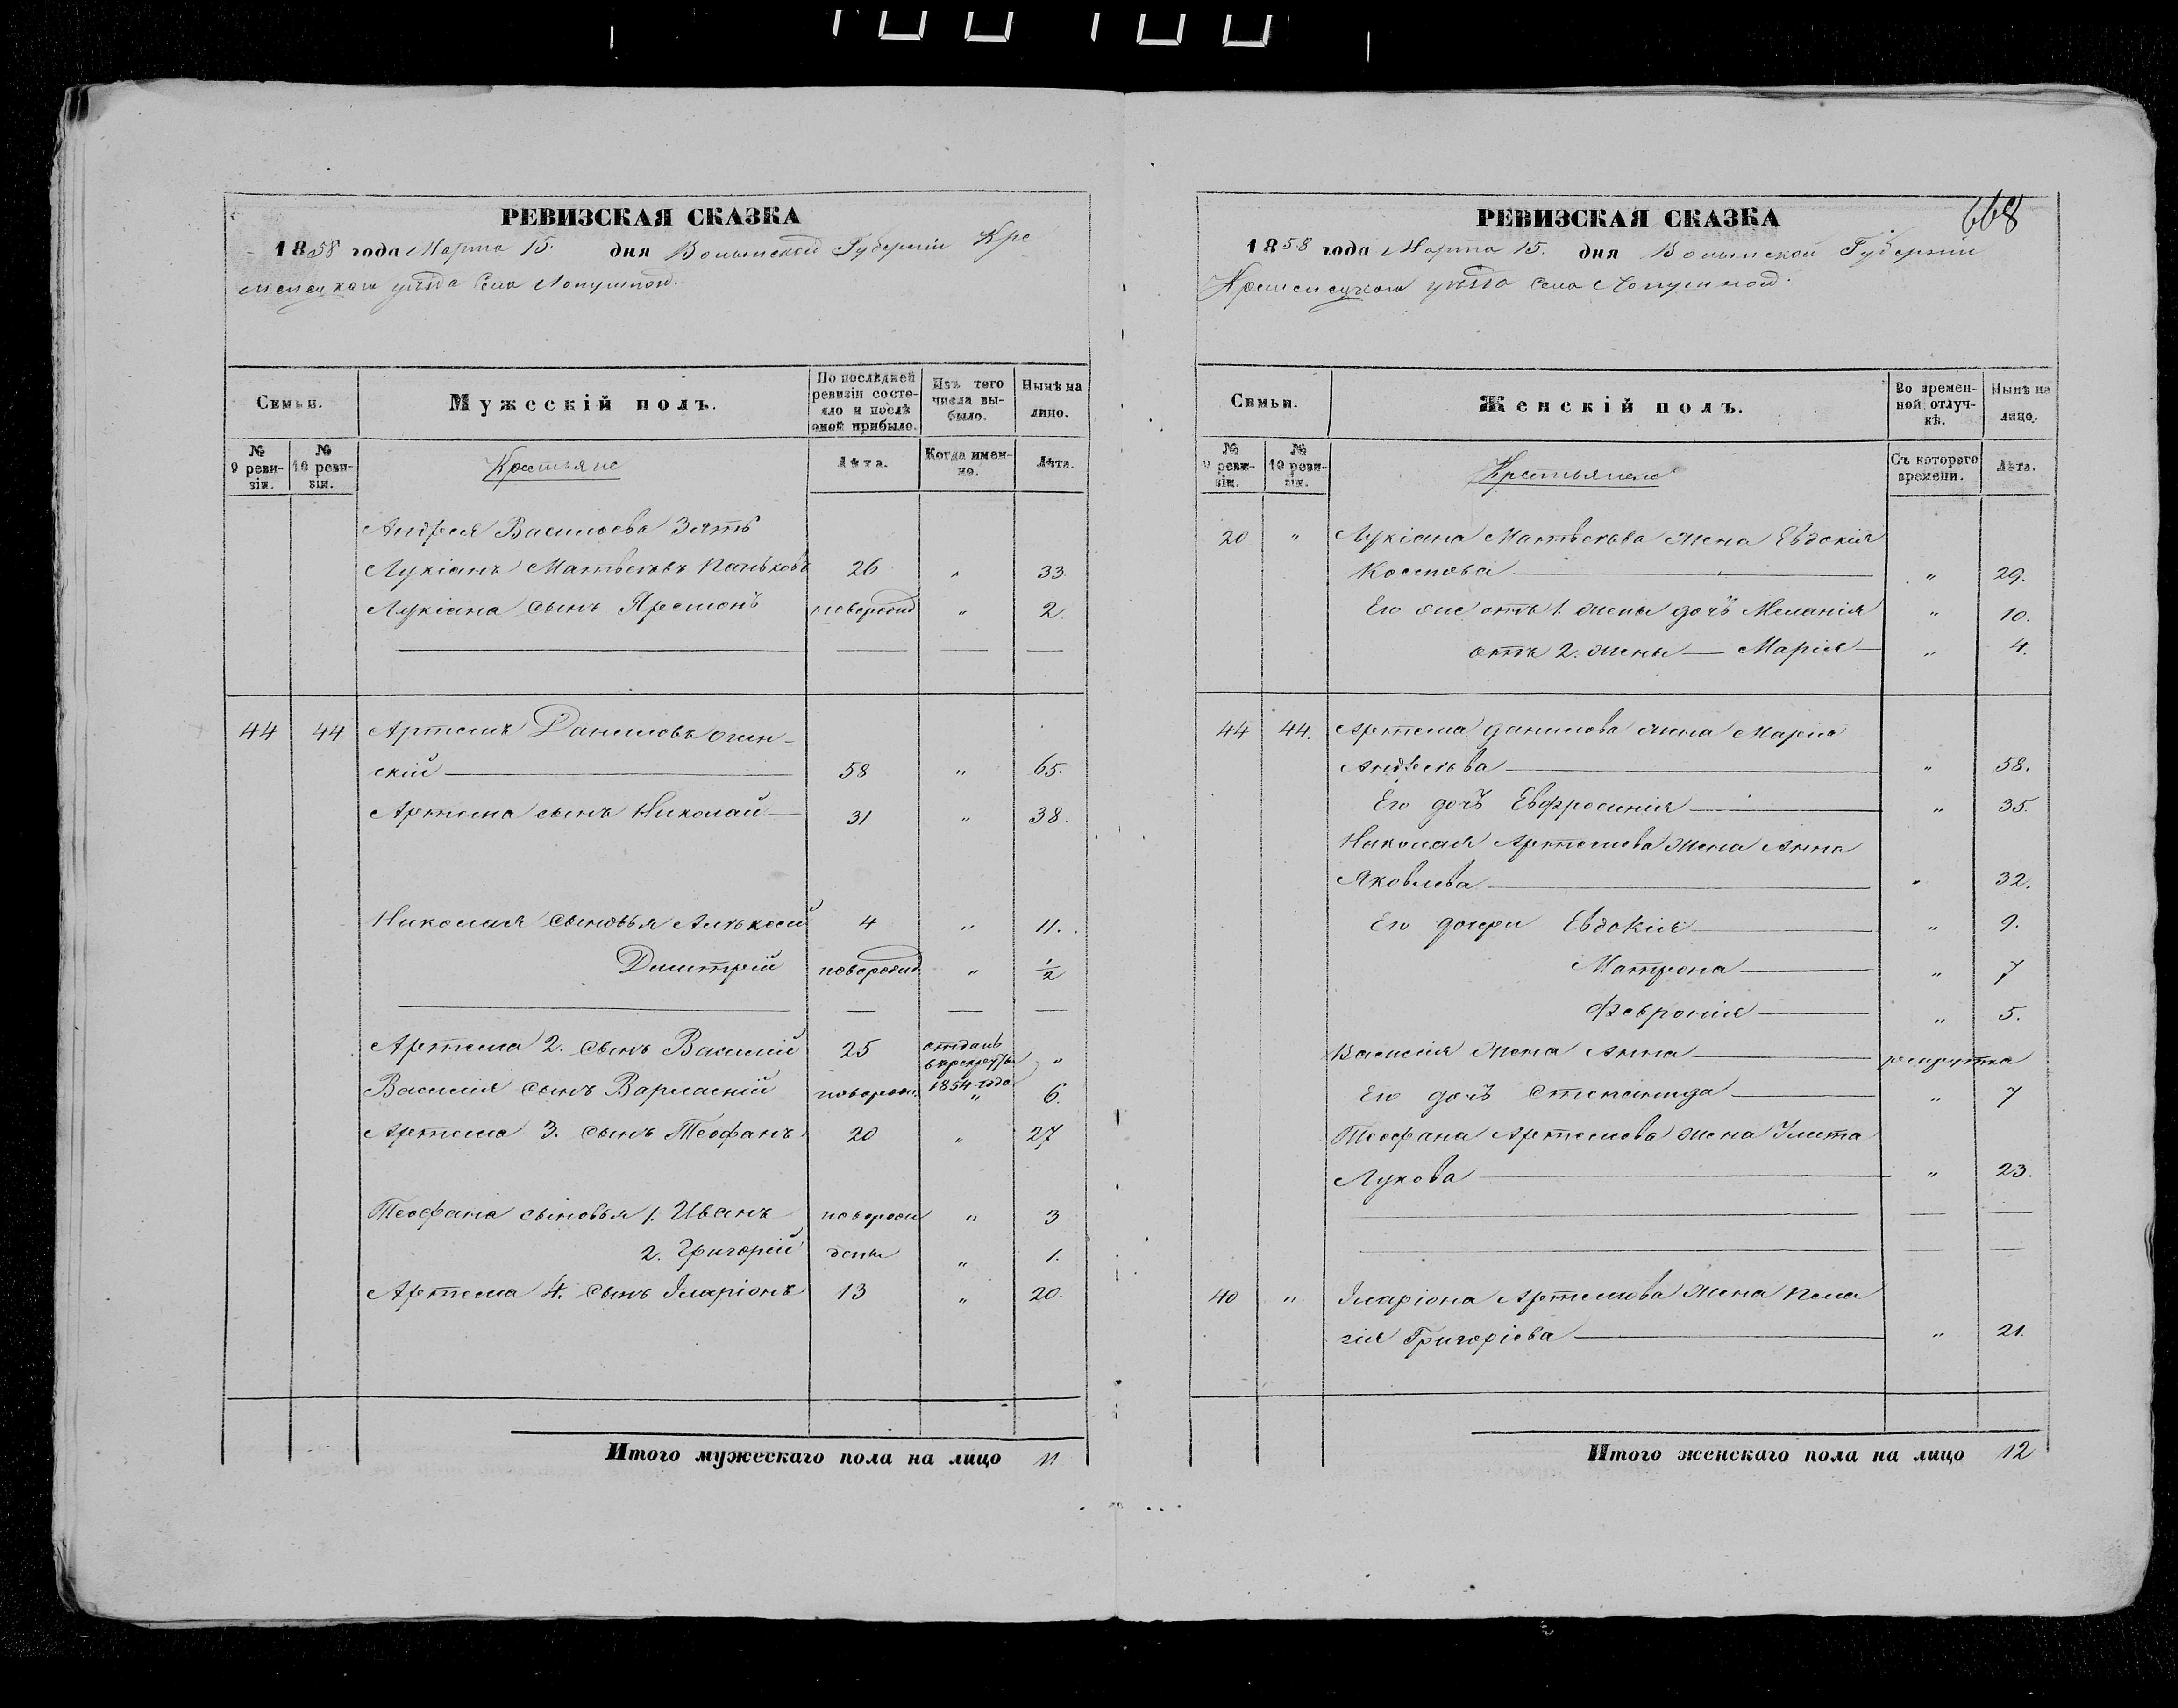 РЕВИЗСКАЯ СКАЗКА
1858 года Марта 15. дня Волынской Губерніи Кре
менецкаго уѣзда Села Лопушной.
Семьи.
Мужескій полъ.
По послѣдней ревизіи состояло и послѣ оной прибыло.
Изъ того числа выбыло.
Нынѣ на лицо.
№ 9 ревизіи.
№ 10 ревизіи.
Крестьяне
Лѣта.
Когда именно.
Лѣта.
Андрея Васильева Зять
Лукіанъ Матвеевъ 26 " 33.
Лукіана сынъ новорожд " 2.
44 44. Артемъ Даниловъ Огин-
скій 58 " 65.
Артема сынъ Николай 31 " 38.
Николая сыновья Алексей 4 " 11.
Димитрій новорожд " 1/2
Артема 2. сынъ Василій 25 отданъ в рекруты 1854 года "
Василія сынъ новорожд. " 6.
Артема 3. сынъ Теофанъ 20 " 27
Теофана сыновья 1. Иванъ новорож " 3
2. Григорій дены " 1.
Артема 4. сынъ Іларіонъ 13 " 20.
Итого мужескаго пола на лицо 11
668
РЕВИЗСКАЯ СКАЗКА
1858 года Марта 15. дня Волынской Губерніи
Кременецкаго уѣзда Села Лопушной.
Семьи.
Женскій полъ.
Во временной отлучкѣ.
Нынѣ на лицо.
№ 9 ревизіи.
№ 10 ревизіи.
Крестьянъ
Съ котораго времени.
Лѣта.
20 " Лукіана Матвеева жена Евдокія
Костова " 29.
Его же отъ 1. жены дочь Меланія " 10.
отъ 2. жены Марія " 4.
44 44. Артема Данилова жена Марія
Андреева " 58.
Его дочь Евфросинія " 35.
Николая Артемова жена Анна
Яковлева " 32.
Его дочери Евдокія " 9.
Матрона " 7
Феврония " 5.
Василія жена Анна рекрутка
Его дочь Степанида " 7
Теофана Артемова жена Улита
Лукова " 23.
40 " Іларіона Артемова жена Пела
гія Григоріева " 21.
Итого женскаго пола на лицо 12